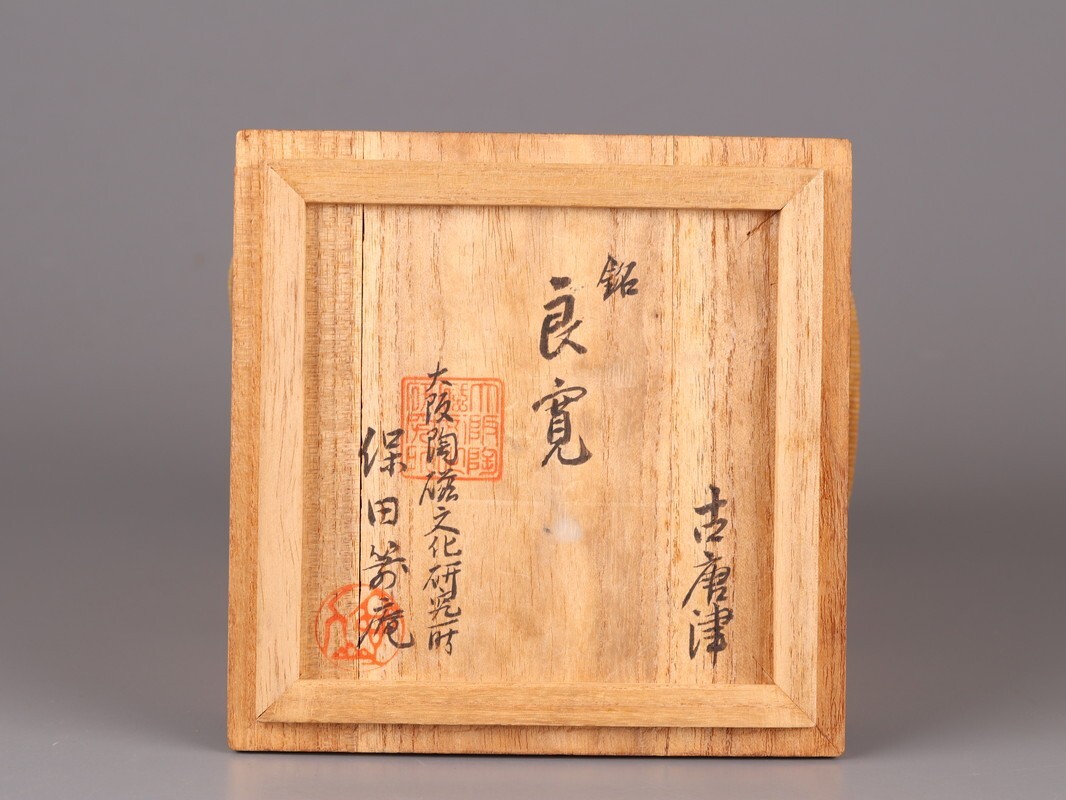 古唐津
銘
良寛
大阪陶磁文化研究所
保田 庵